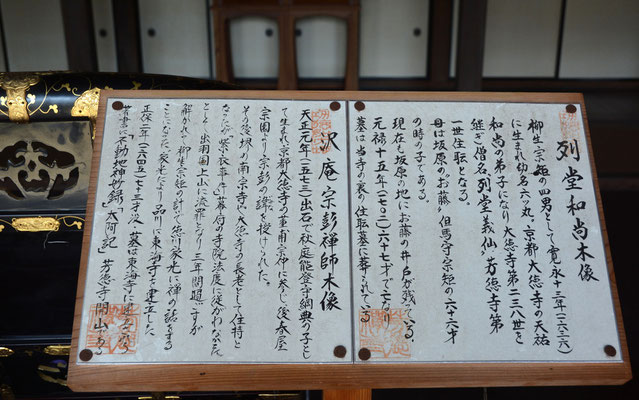 列堂和尚木像
柳生宗矩の四男として寛永十三年(一六三六)
に生まれ幼名六丸。京都大徳寺の天祐
和尚の弟子になり大徳寺第二三八世を
継ぎ僧名列堂義仙。芳徳寺第
一世住職となる。
母は坂原のお藤。但馬守宗矩の六十六才
の時の子である。
現在も坂原の地にお藤の井戸が残ている。
元禄十五年(一七〇二)六十七才で亡くなり
墓は当寺の裏の住職墓に葬られてゐる
沢庵宗彭禅師木像
天正元年(一五七三)出石で秋庭能登守綱典の子とし
て生まれ京都大徳寺の董甫宗仲に参じ後春屋
宗園より宗彭の諱を授けられた。
その後堺の南宗寺や大徳寺の長老として住持と
なったが紫衣事件(幕府の寺院法度に従がわなかった
として)出羽国上山に流罪となり三年間過ごすが
解かれて柳生宗矩の計で徳川家光に禅の話をする
ことになった。家光により品川に東海寺を建立した
正保二年(一六四五)七十三才没。墓は東海寺に
「不動智神妙録」「太阿記」芳徳寺開山である